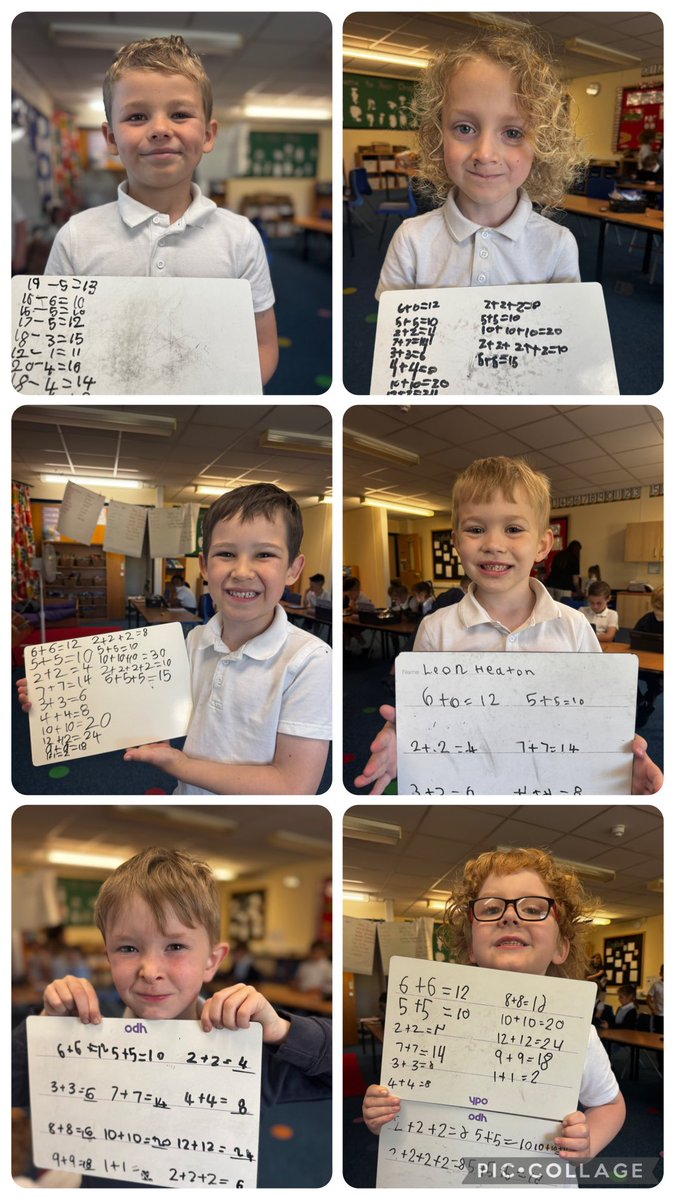 19 – 5 = 13
16 – 6 = 10
15 – 5 = 10
17 – 5 = 12
18 – 3 = 15
12 – 1 = 11
20 – 4 = 16
18 – 4 = 14
6+6=12
5+5=10
2+2=4
7+7=14
3+3=6
4+4=8
10+10=20
12+12=24
2+2+2=8
5+5=10
10+10+10=20
2+2+2+2=10
5+5=15
6+6=12
5+5=10
2+2=4
7+7=14
3+3=6
4+4=8
10+10=20
12+12=24
9+9=18
1+1=2
2+2+2=8
5+5=10
10+10+10=30
2+2+2+2=10
5+5+5=15
Name Leon Heaton
6+6=12 5+5=10
2+2=4 7+7=14
3+3=6 4+4=8
odh
6+6=12 5+5=10 2+2=4
3+3=6 7+7=14 4+4=8
8+8=16 10+10=20 12+12=24
9+9=18 1+1= 2+2+2=6
6+6=12
5+5=10
2+2=4
7+7=14
3+3=8
4+4=8
8+8=12
10+10=20
12+12=24
9+9=18
1+1=2
ypo
odh
2+2+2=8 5+5=10
2+2+2+2=8
PIC•COLLAGE